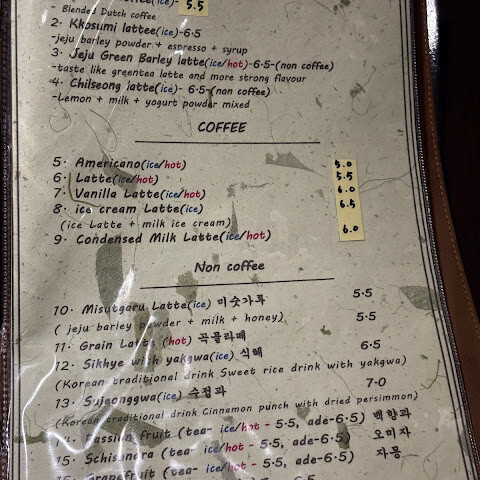 5.5
- Blended Dutch coffee
2. Kkosumi lattee(ice)-6.5
-jeju barley powder + espresso + syrup
3. Jeju Green Barley latte(ice/hot)-6.5-(non coffee)
-taste like greentea latte and more strong flavour
4. Chilseong latte(ice)- 6.5-(non coffee)
-Lemon + milk + yogurt powder mixed
COFFEE
5. Americano(ice/hot) 5.0
6. Latte(ice/hot) 5.5
7. Vanilla Latte(ice/hot) 6.0
8. ice cream Latte(ice) 6.5
(ice Latte + milk ice cream)
9. Condensed Milk Latte(ice/hot) 6.0
Non coffee
10. Misutgaru Latte(ice) 미숫가루 5.5
( jeju barley powder + milk + honey) 5.5
11. Grain Latte (hot) 곡물라떼
12. Sikhye with yakgwa(ice) 식혜 6.5
(Korean traditional drink Sweet rice drink with yakgwa)
13. Sujeonggwa(ice) 수정과 7.0
(Korean traditional drink Cinnamon punch with dried persimmon)
14. Passion fruit (tea- ice/hot - 5.5, ade-6.5) 백향과
15. Schisandra (tea- ice/hot - 5.5, ade-6.5) 오미자
16. Grapefruit (tea- ice/hot - 5.5, ade-6.5) 자몽